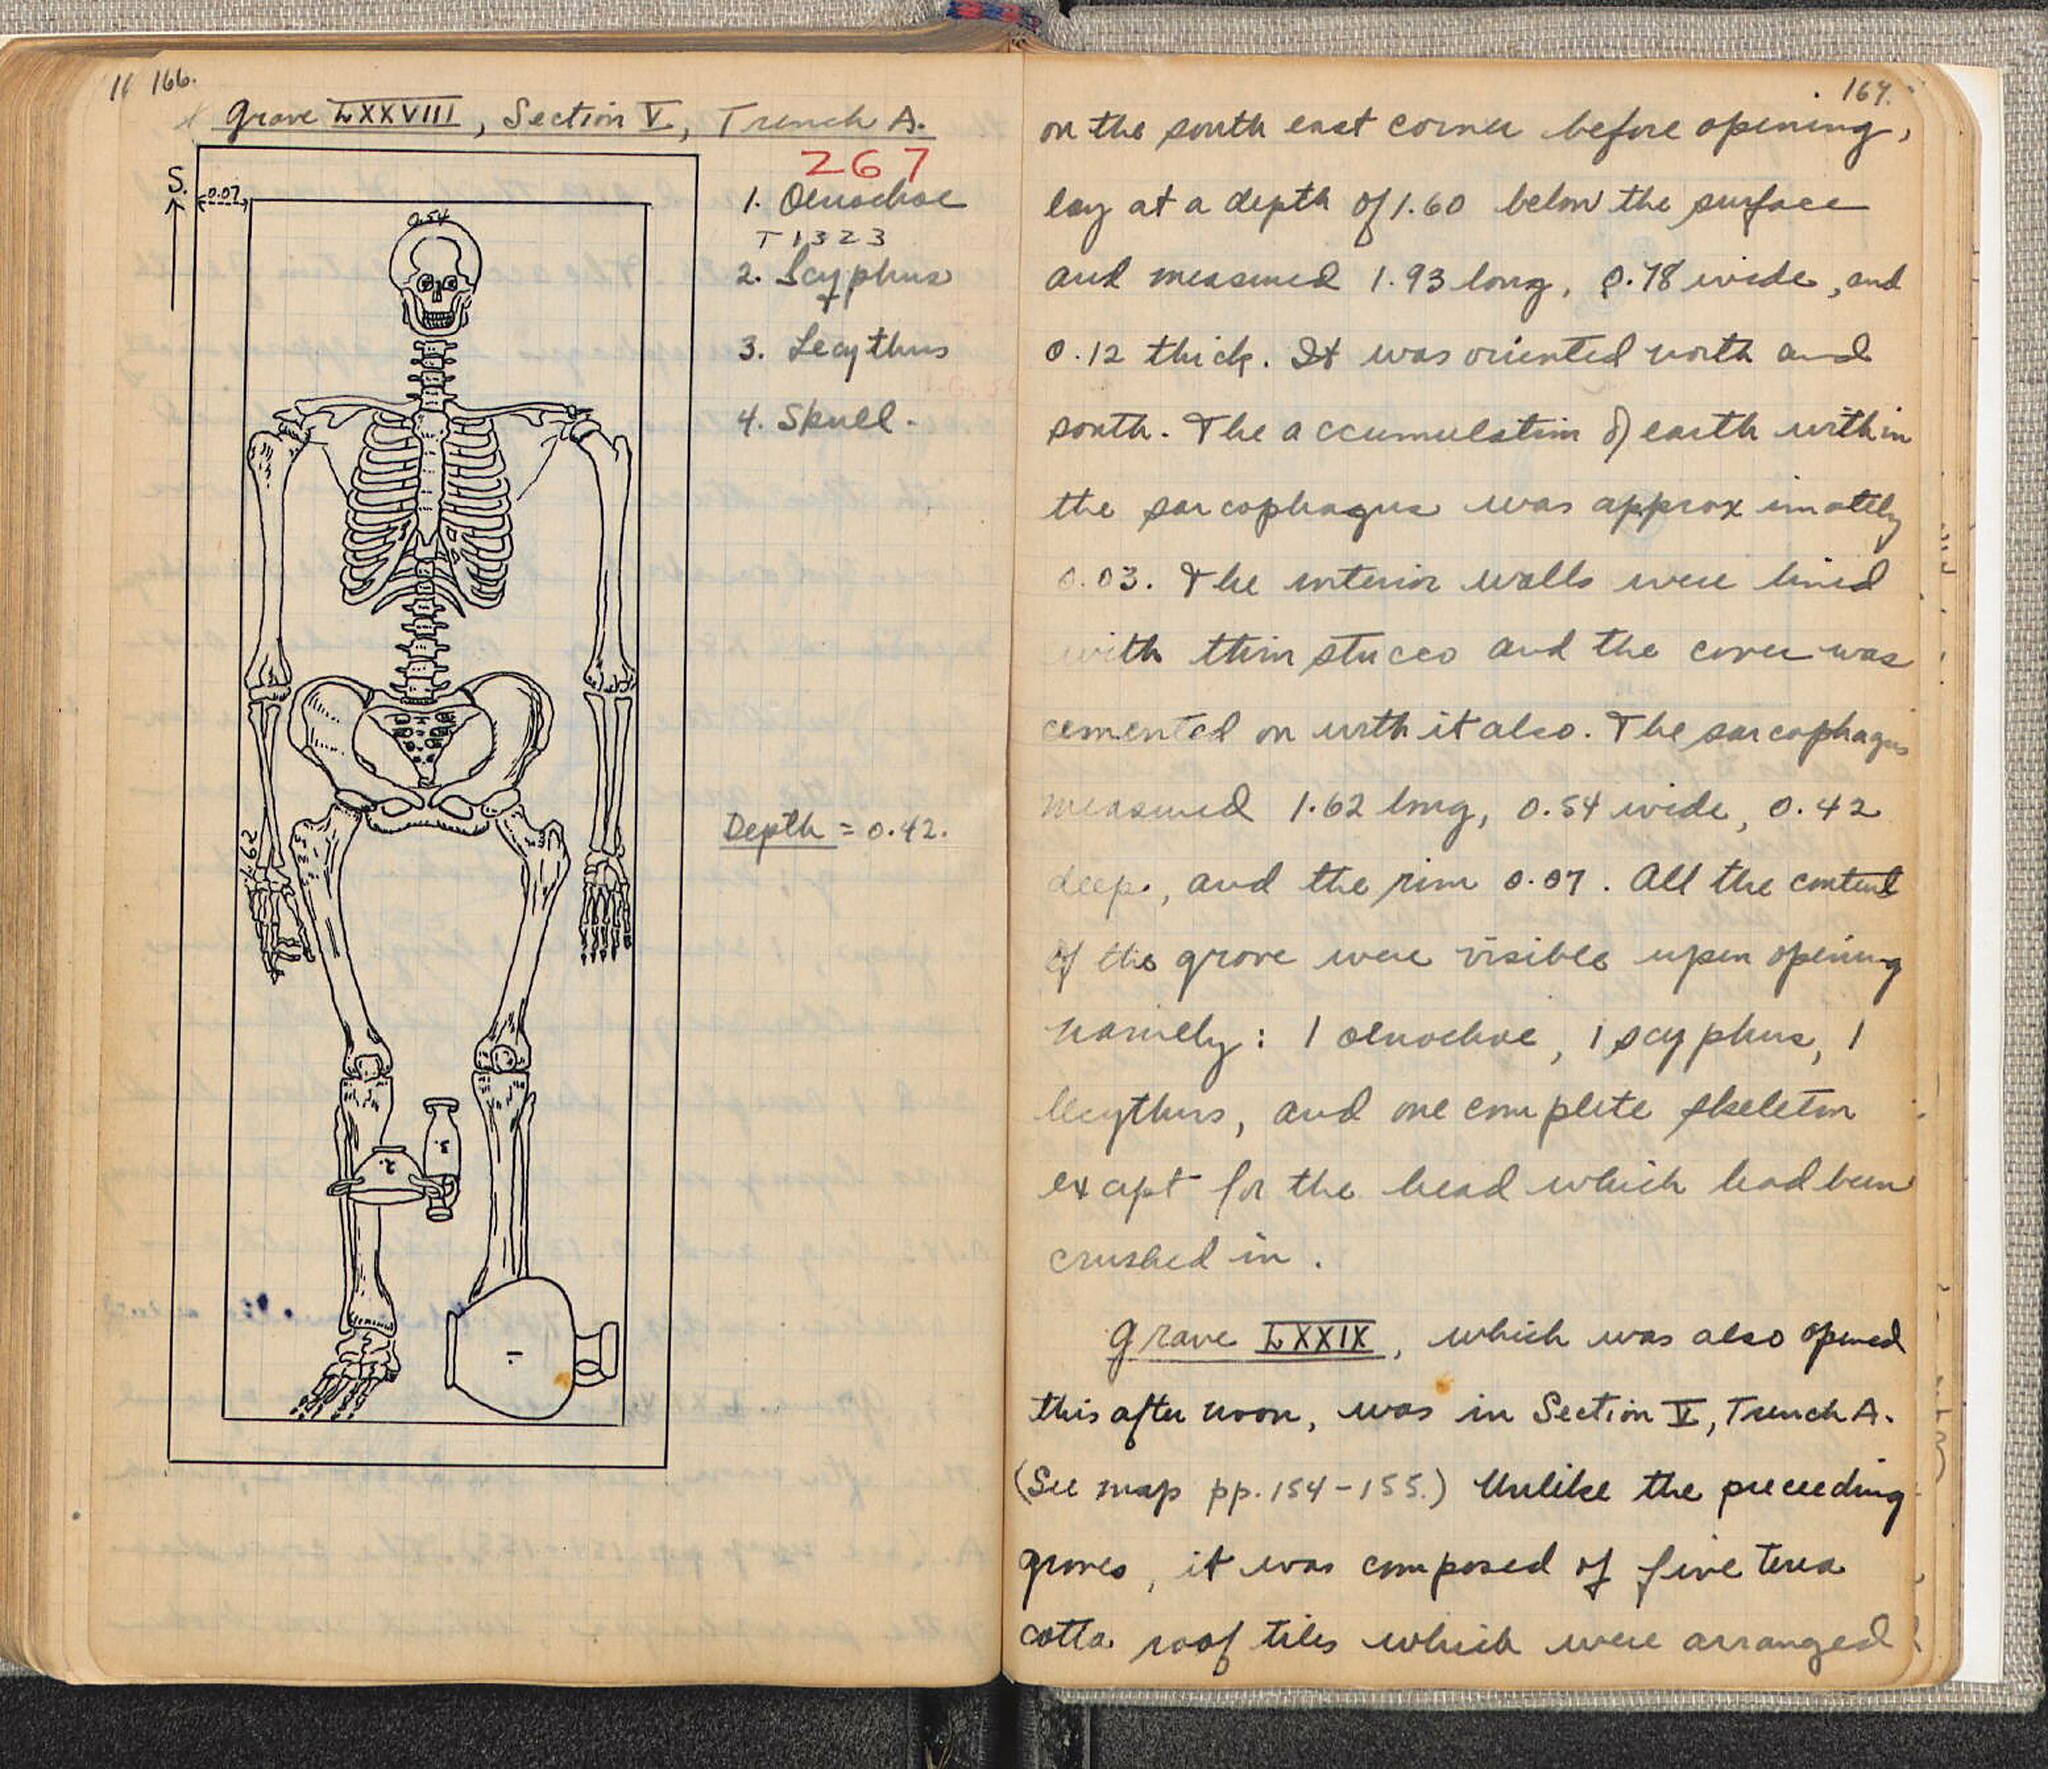 11 166.
Grave LXXVIII, Section V, Trench A.
267
S.
0.07
0.54
1. Oenochoe
T 1323
2. Scyphus
+
3. Lecythus
4. Skull.
Depth = 0.42.
1.62
3.
2.
1
167.
on the south east corner before opening,
lay at a depth of 1.60 below the surface
and measured 1.93 long, 0.78 wide, and
0.12 thick. It was oriented north and
south. The accumulation of earth within
the sarcophagus was approximately
0.03. The interior walls were lined
with thin stucco and the cover was
cemented on with it also. The sarcophagus
measured 1.62 long, 0.54 wide, 0.42
deep, and the rim 0.07. All the content
of the grave were visible upon opening
namely: 1 oenochoe, 1 scyphus, 1
lecythus, and one complete skeleton
except for the head which had been
crushed in.
Grave LXXIX, which was also opened
this after noon, was in Section V, Trench A.
(See map pp. 154-155.) Unlike the preceeding
graves, it was composed of five terra
cotta roof tiles which were arranged